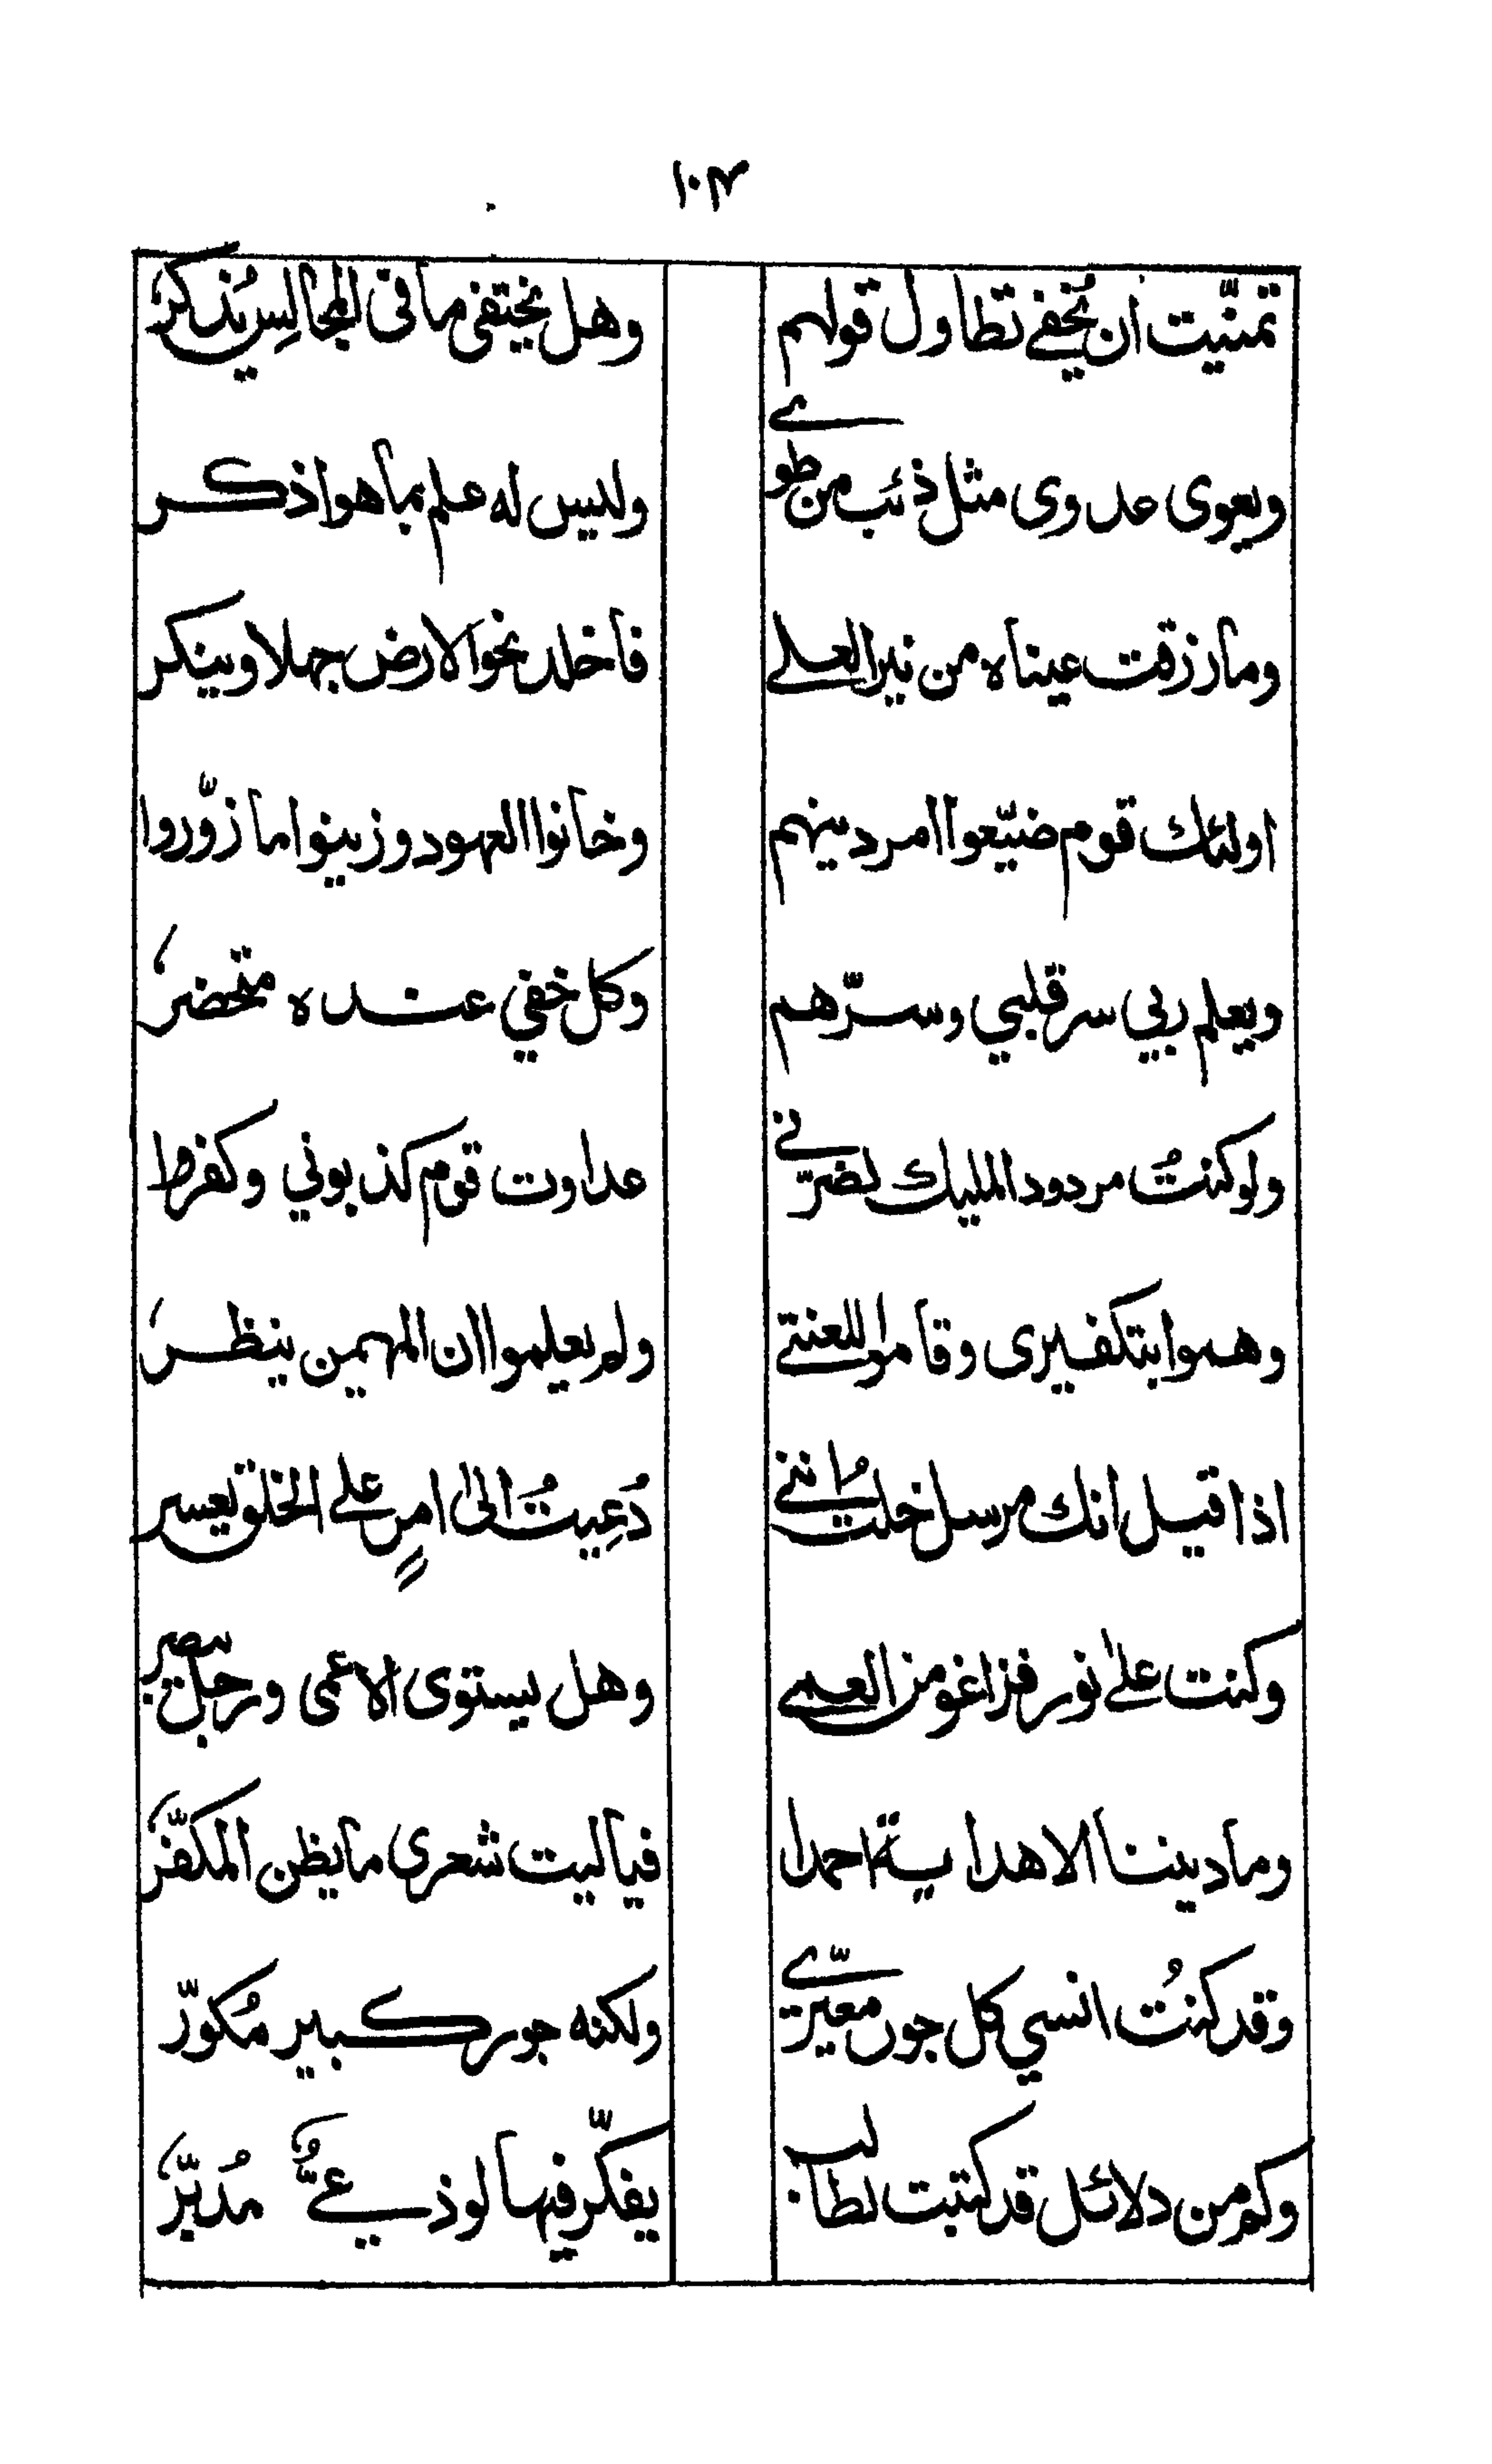 ١٠٣
تمنّيت ان يُخفے تطاول قولهم وهل يختفى ما فى المجالِس يُذكرُ
ويعوى عدوى مثل ذئب من طوے وليس له علم بما هو اذكر
وما رزقت عيناه من نير العلے فاخلد نحو الارض جهلا وينكر
اولئك قوم ضيّعوا امر دينهم وخانوا العهود وزينوا ما زوّروا
ويعلم ربي سر قلبي وسرّهم وكل خفي عنده متحضرُ
ولو كنتُ مردود المليك لضرّنے عداوت قوم كذبوني وكفروا
وهموا بتكفيرى وقاموا للعنتے ولم يعلموا ان المهيمن ينظرُ
اذا قيل انك مرسل خلتُ اننے دُعِيتُ الىٰ امرٍ علے الخلق يعسر
وكنت علےٰ نور فزاغو من العمے وهل يستوى الاعمى ورجل يبصر
وما ديننا الا هداية احمدا فيا ليت شعرى ما يظن المكفّرُ
وقد كنتُ انسي كل جور معيّرے ولكنه جور كبير مُكوّر
وكم من دلائل قد كتبت لطالب يفكّر فيها لوذعيٌّ مُدبّرُ